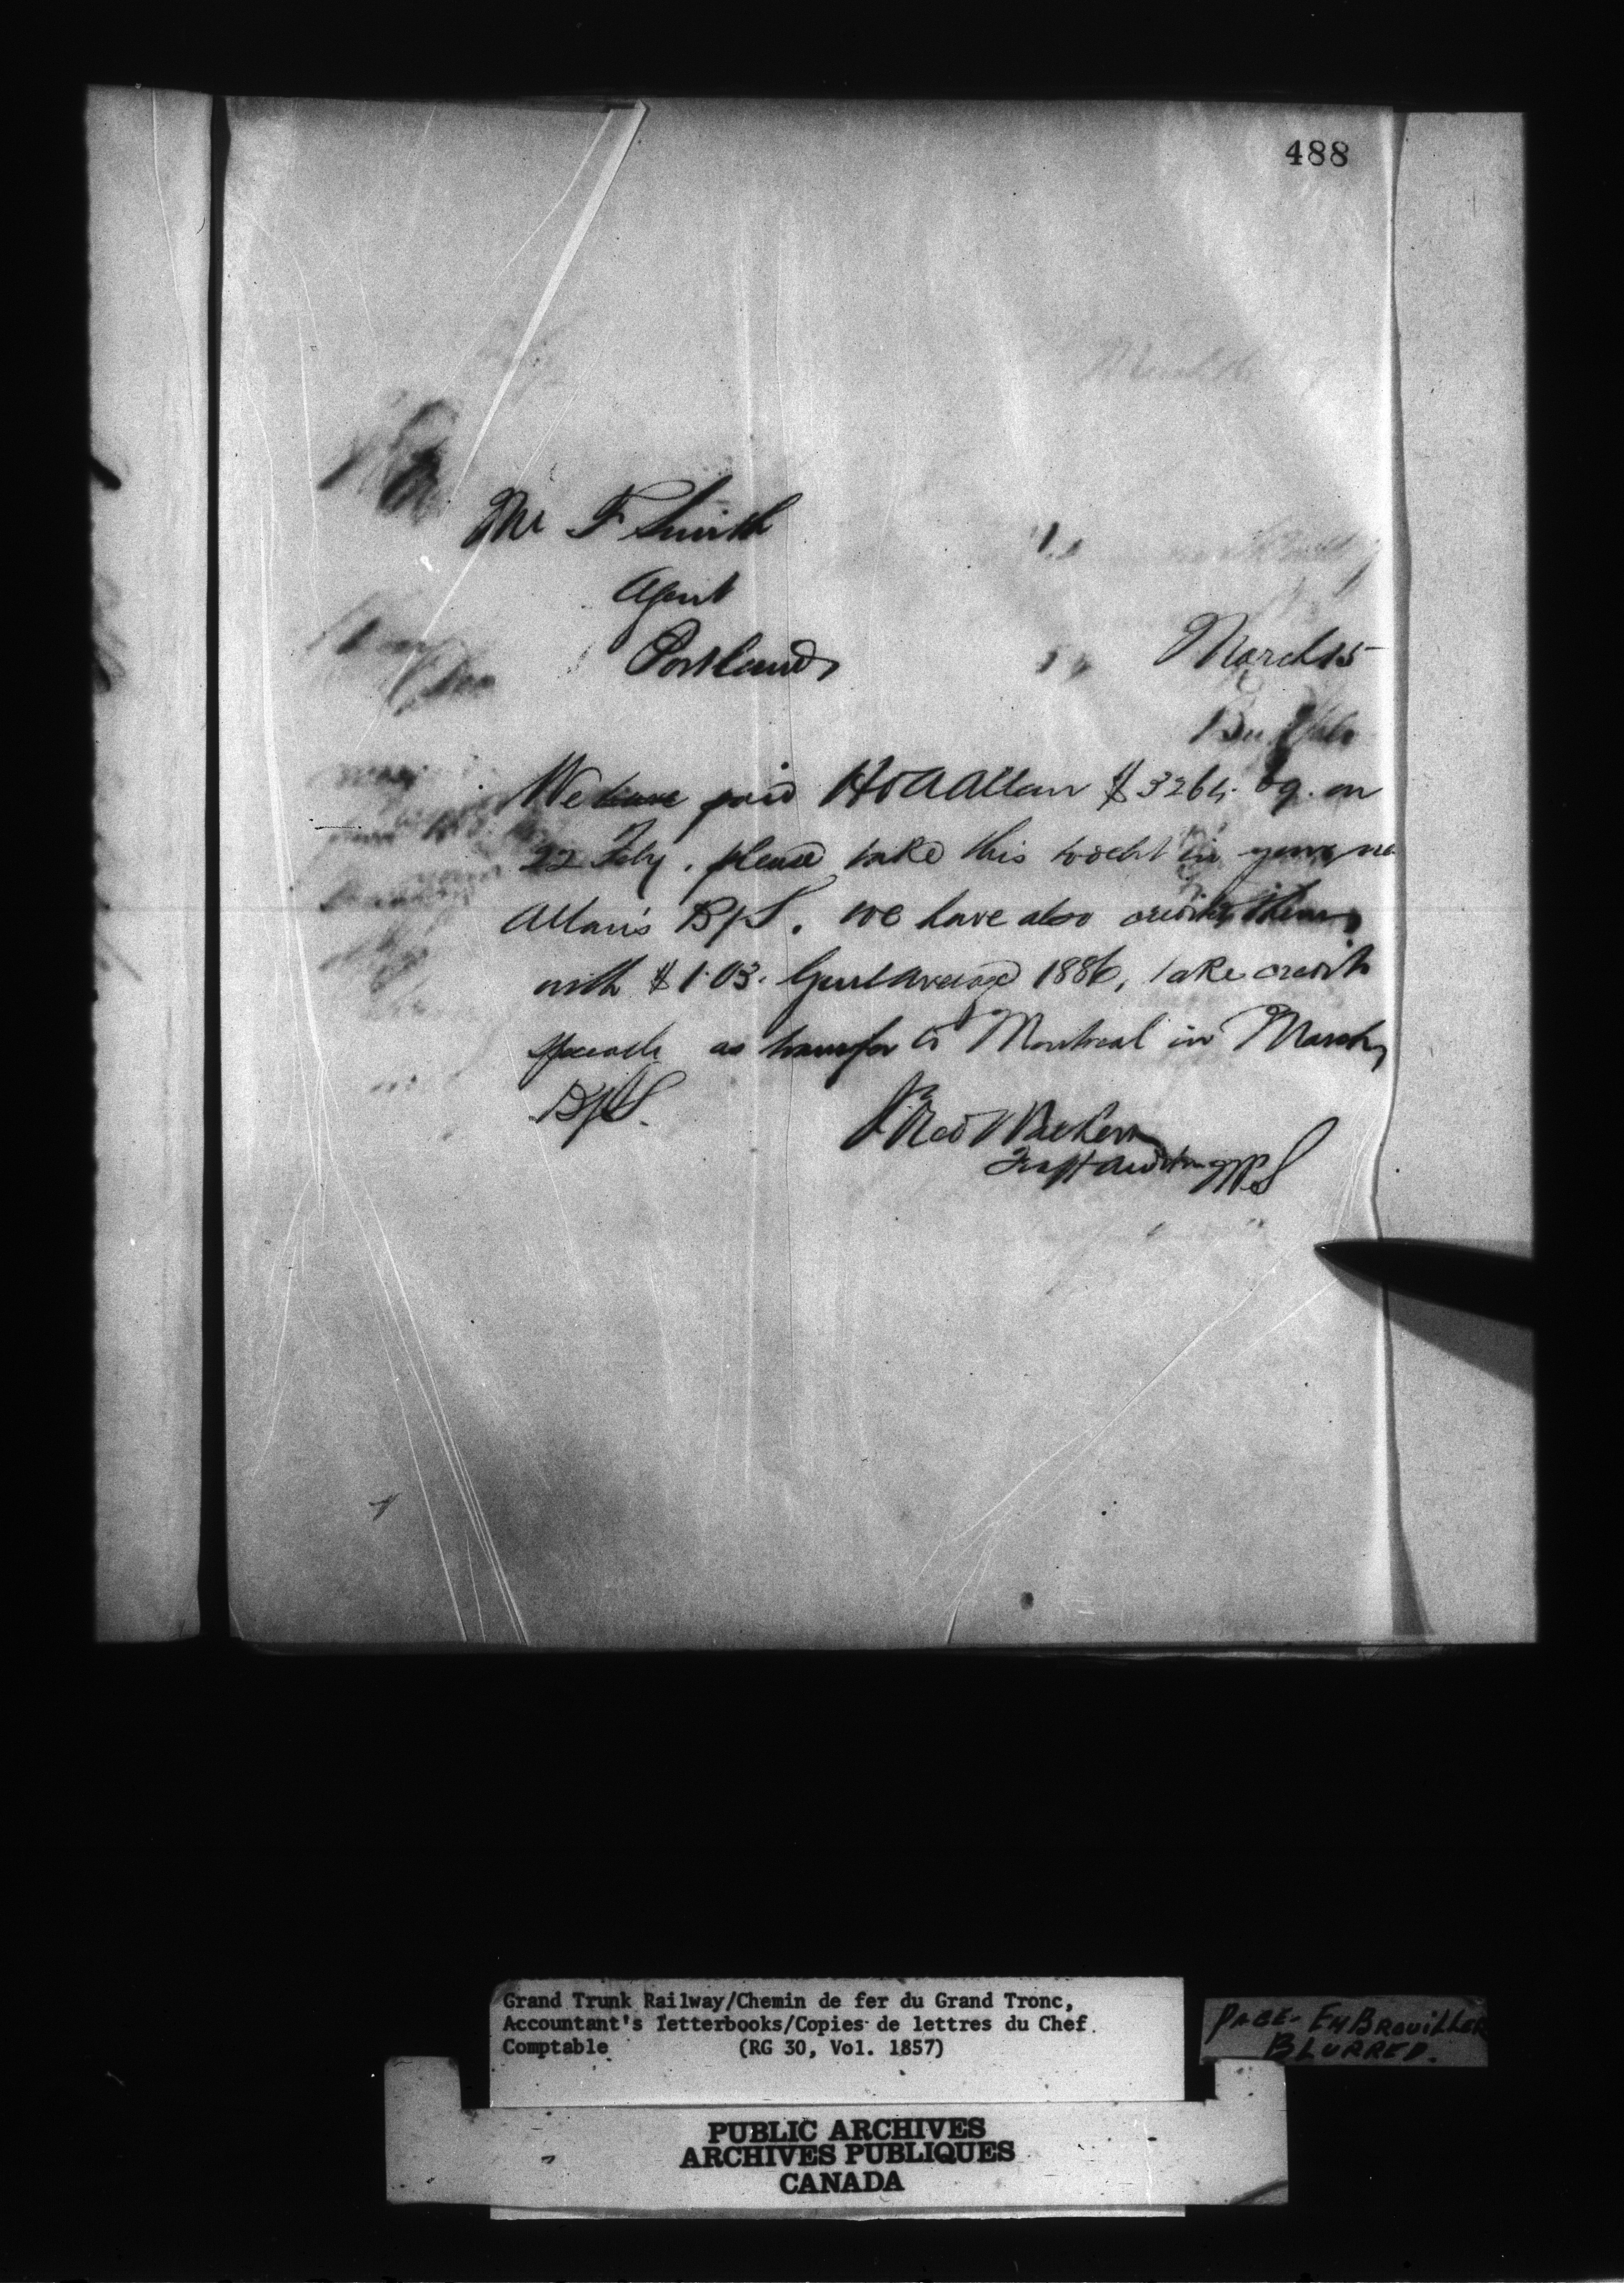 488
Mr F Smith
Agent
Portland,
March 15
We have paid H & A Allan $3264.09. on
22 Feby. please take this to credit in your
Allan's B/S. We have also credited them
with $1.03. Genl average 1886, take credit
specially as transfer to Montreal in March,
B/S.
Fred Walker
Auditor
Grand Trunk Railway/Chemin de fer du Grand Tronc,
Accountant's letterbooks/Copies de lettres du Chef
Comptable (RG 30, Vol. 1857)
PAGE - EMBROUILLER
BLURRED.
PUBLIC ARCHIVES
ARCHIVES PUBLIQUES
CANADA